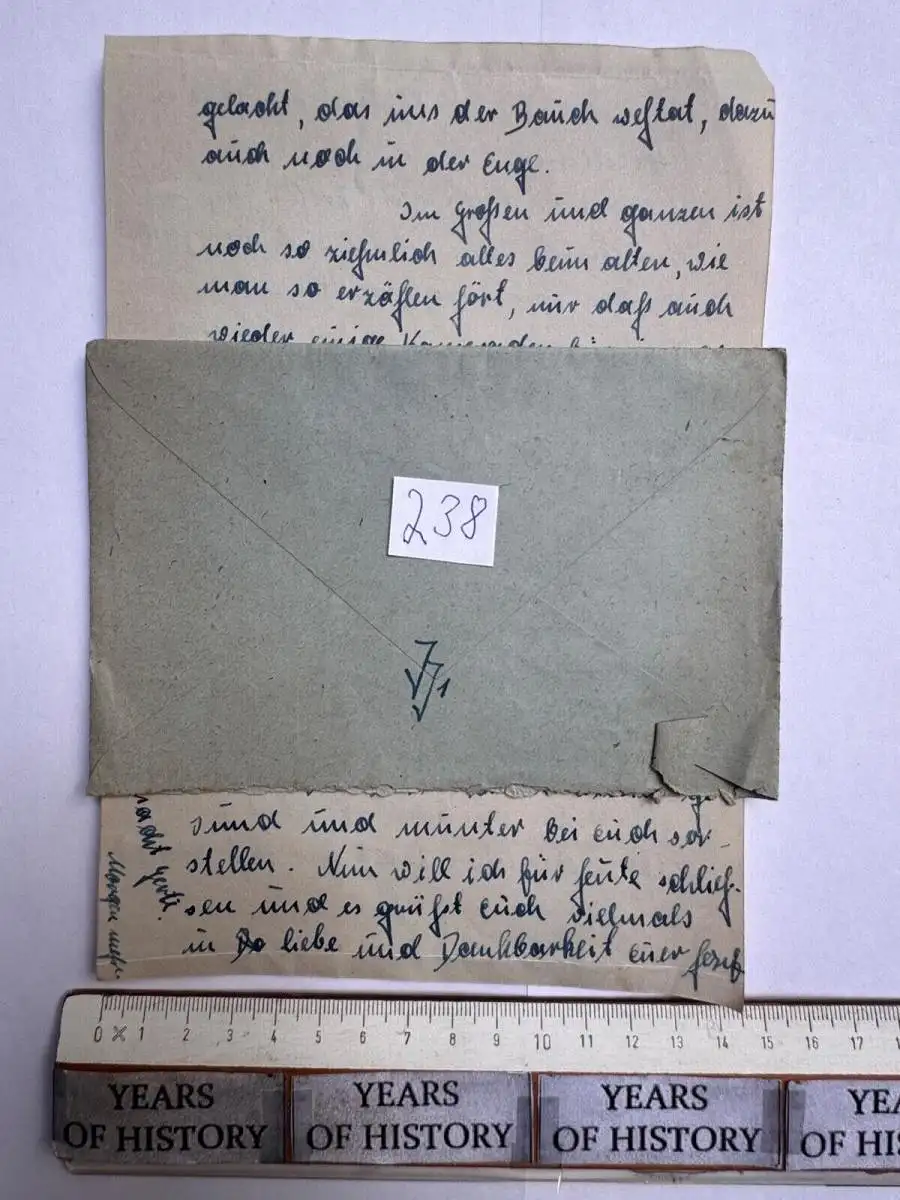 gelacht, das uns der Bauch wehtat, dazu
auch noch in der Enge.
Im großen und ganzen ist
noch so ziehmlich alles beim alten, wie
man so erzählen hört, nur daß auch
wieder einige Kameraden
238
sund und munter bei euch vor-
stellen. Nun will ich für heute schlief-
sen und es grüßt euch vielmals
in Do liebe und Dankbarkeit euer Josef
Morgen mehr
0 1 2 3 4 5 6 7 8 9 10 11 12 13 14 15 16 17
YEARS OF HISTORY
YEARS OF HISTORY
YEARS OF HISTORY
YEA
OF HI